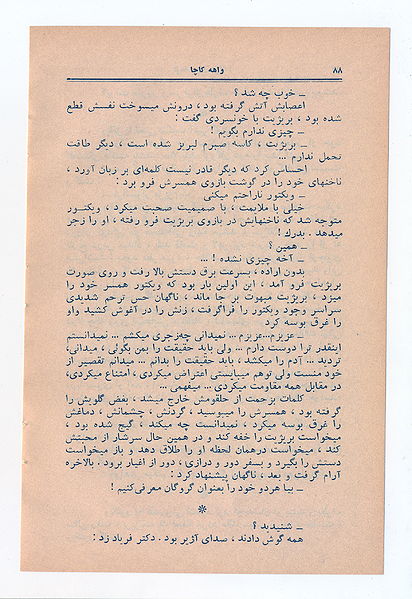 ۸۸ واهه کاچا
ــ خوب چه شد ؟
اعصابش آتش گرفته بود ، درونش میسوخت نفسش قطع
شده بود ، بریژیت با خونسردی گفت :
ــ چیزی ندارم بگویم !
ــ بریژیت ، کاسه صبرم لبریز شده است ، دیگر طاقت
تحمل ندارم ...
احساس کرد که دیگر قادر نیست کلمه‌ای بر زبان آورد ،
ناخنهای خود را در گوشت بازوی همسرش فرو برد :
ــ ویکتور ناراحتم میکنی
خیلی با ملایمت ، با صمیمیت صحبت میکرد ، ویکتور
متوجه شد که ناخنهایش در بازوی بریژیت فرو رفته ، او را زجر
میدهد . بدرك !
ــ همین ؟
ــ آخه چیزی نشده ! ...
بدون اراده ، بسرعت برق دستش بالا رفت و روی صورت
بریژیت فرو آمد ، این اولین بار بود که ویکتور همسر خود را
میزد ، بریژیت مبهوت بر جا ماند ، ناگهان حس ترحم شدیدی
سراسر وجود ویکتور را فراگرفت ، زنش را در آغوش کشید واو
را غرق بوسه کرد
ــ عزیزم...عزیزم ... نمیدانی چه‌زجری میکشم ... نمیدانستم
اینقدر ترا دوست دارم ... ولی باید حقیقت را بمن بگوئی ، میدانی،
تردید... آدم را میکشد ، باید حقیقت را بدانم ... میدانم تقصیر از
خود منست ولی توهم میبایستی اعتراض میکردی ، امتناع میکردی،
در مقابل همه مقاومت میکردی ... میفهمی ...
کلمات بزحمت از حلقومش خارج میشد ، بغض گلویش را
گرفته بود ، همسرش را میبوسید ، گردنش ، چشمانش ، دماغش
را غرق بوسه میکرد ، نمیدانست چه میکند ، گیج شده بود ،
میخواست بریژیت را خفه کند و در همین حال سرشار از محبتش
کند ، میخواست درهمان لحظه او را طلاق دهد و باز میخواست
دستش را بگیرد و بسفر دور و درازی ، دور از اغیار برود . بالاخره
آرام گرفت و بعد ، ناگهان پیشنهاد کرد :
ــ بیا هردو خود را بعنوان گروگان معرفی‌کنیم !
*
ــ شنیدید ؟
همه گوش دادند ، صدای آژیر بود . دکتر فریاد زد :